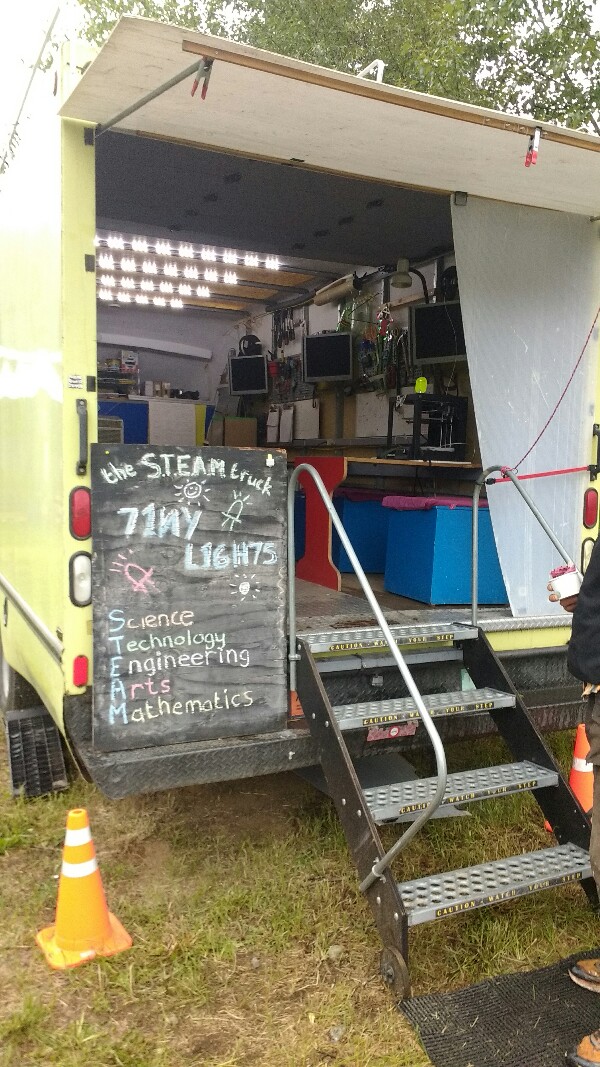 the S.T.E.A.M truck
71NY
L16H7S
Science
Technology
Engineering
Arts
Mathematics
CAUTION - WATCH YOUR STEP
CAUTION - WATCH YOUR STEP
CAUTION - WATCH YOUR STEP
CAUTION - WATCH YOUR STEP